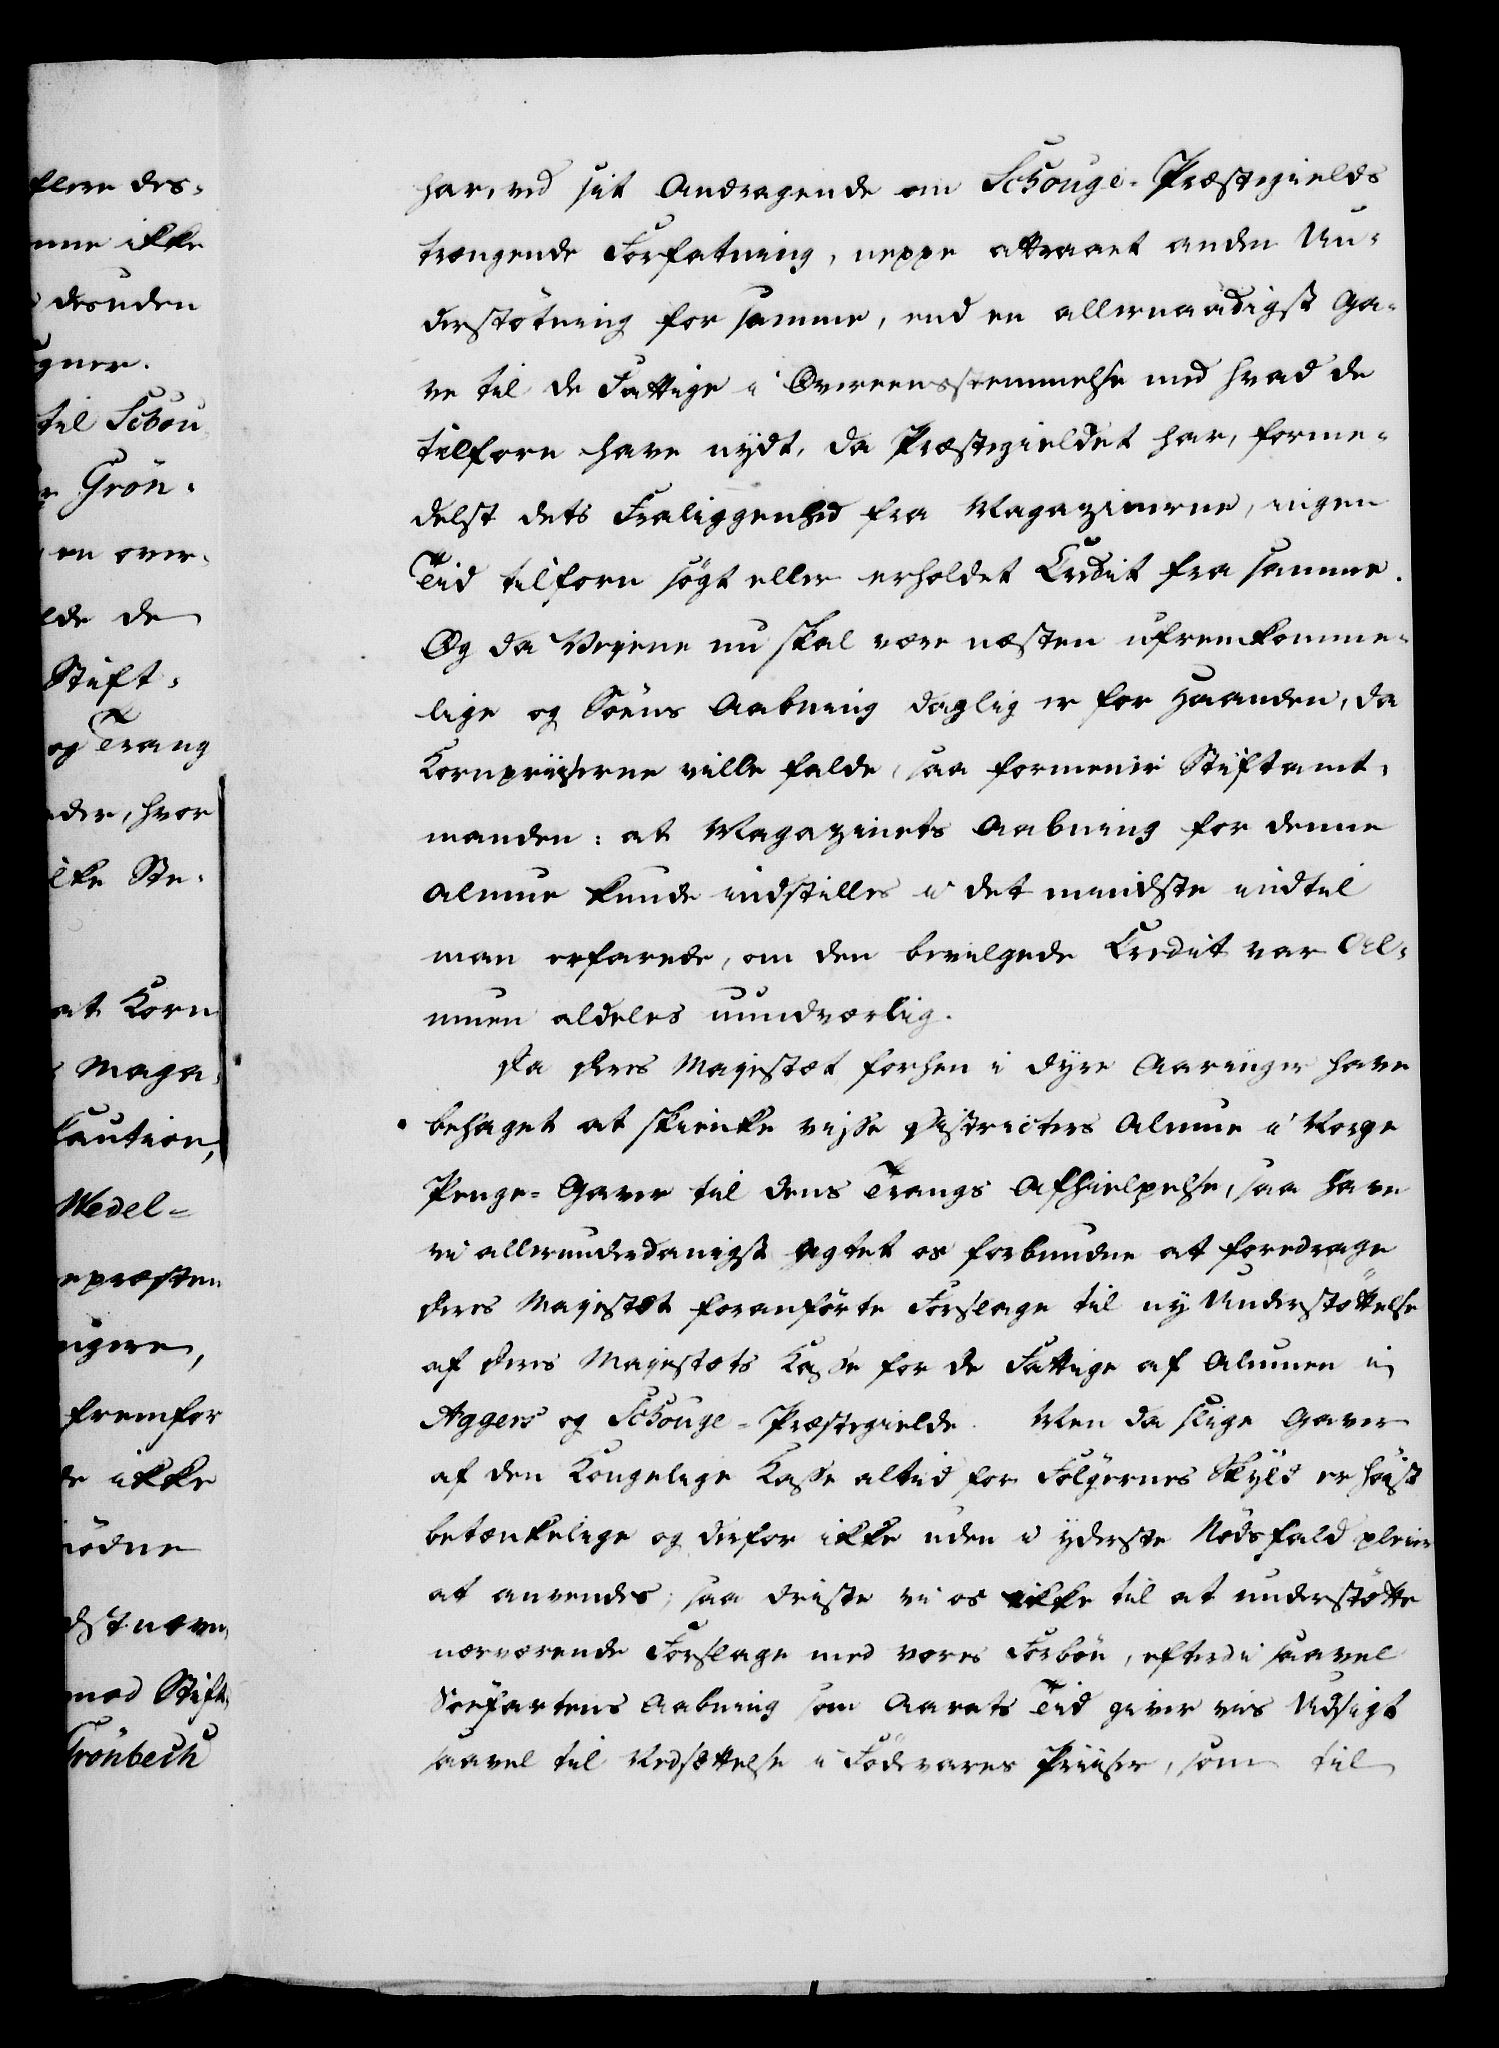 flere des-
nne ikke
desuden
gner.
til Schou
Grön-
en over-
lde de
Stift-
og Trang
der, hvor
ilke Ste-
at Korn
Maga-
Caution,
Wedel-
epræsten
ngere,
fremfor
de ikke
nödne
dstnævn,
mod Stift,
Grönbech
har, ved sit Andragende om Schouge-Præstegields
trængende Forfatning, neppe attraaet anden Un-
derstötning for samme, end en allernaadigst Ga-
ve til de Fattige i Overeensstemmelse med hvad de
tilforn have nydt, da Præstegieldet har, forme-
delst dets Fraliggenhed fra Magazinerne, ingen
Tid tilforn sögt eller erholdet Credit fra samme.
Og da Veiene nu skal være næsten ufremkomme-
lige og Söens Aabning daglig er for Haanden, da
Kornpriiserne ville falde, saa formener Stiftamt-
manden: at Magazinets Aabning for denne
Almue kunde indstilles i det mindste indtil
man erfarede, om den bevilgede Credit var Al-
muen aldeles uundværlig.
Da Deres Majestæt forhen i dyre Aaringer have
behaget at skienke visse Districters Almue i Norge
Penge-Gaver til dens Trangs Afhielpelse, saa have
vi allerunderdanigst agtet os forbundne at foredrage
Deres Majestæt foranförte Forslage til ny Understöttelse
af Deres Majestæts Kasse for de Fattige af Almuen i
Aggers og Schouge-Præstegielde. Men da slige Gaver
af den Kongelige Kasse altid for Fölgernes Skyld er höist
betænkelige og derfor ikke uden i yderste Nödsfald pleier
at anvendes, saa driste vi os ikke til at understötte
nærværende Forslage med vores Forbön, efterdi saavel
Söefartens Aabning som Aarets Tid giver vis Udsigt
saavel til Nedsættelse i Födevares Priiser, som til